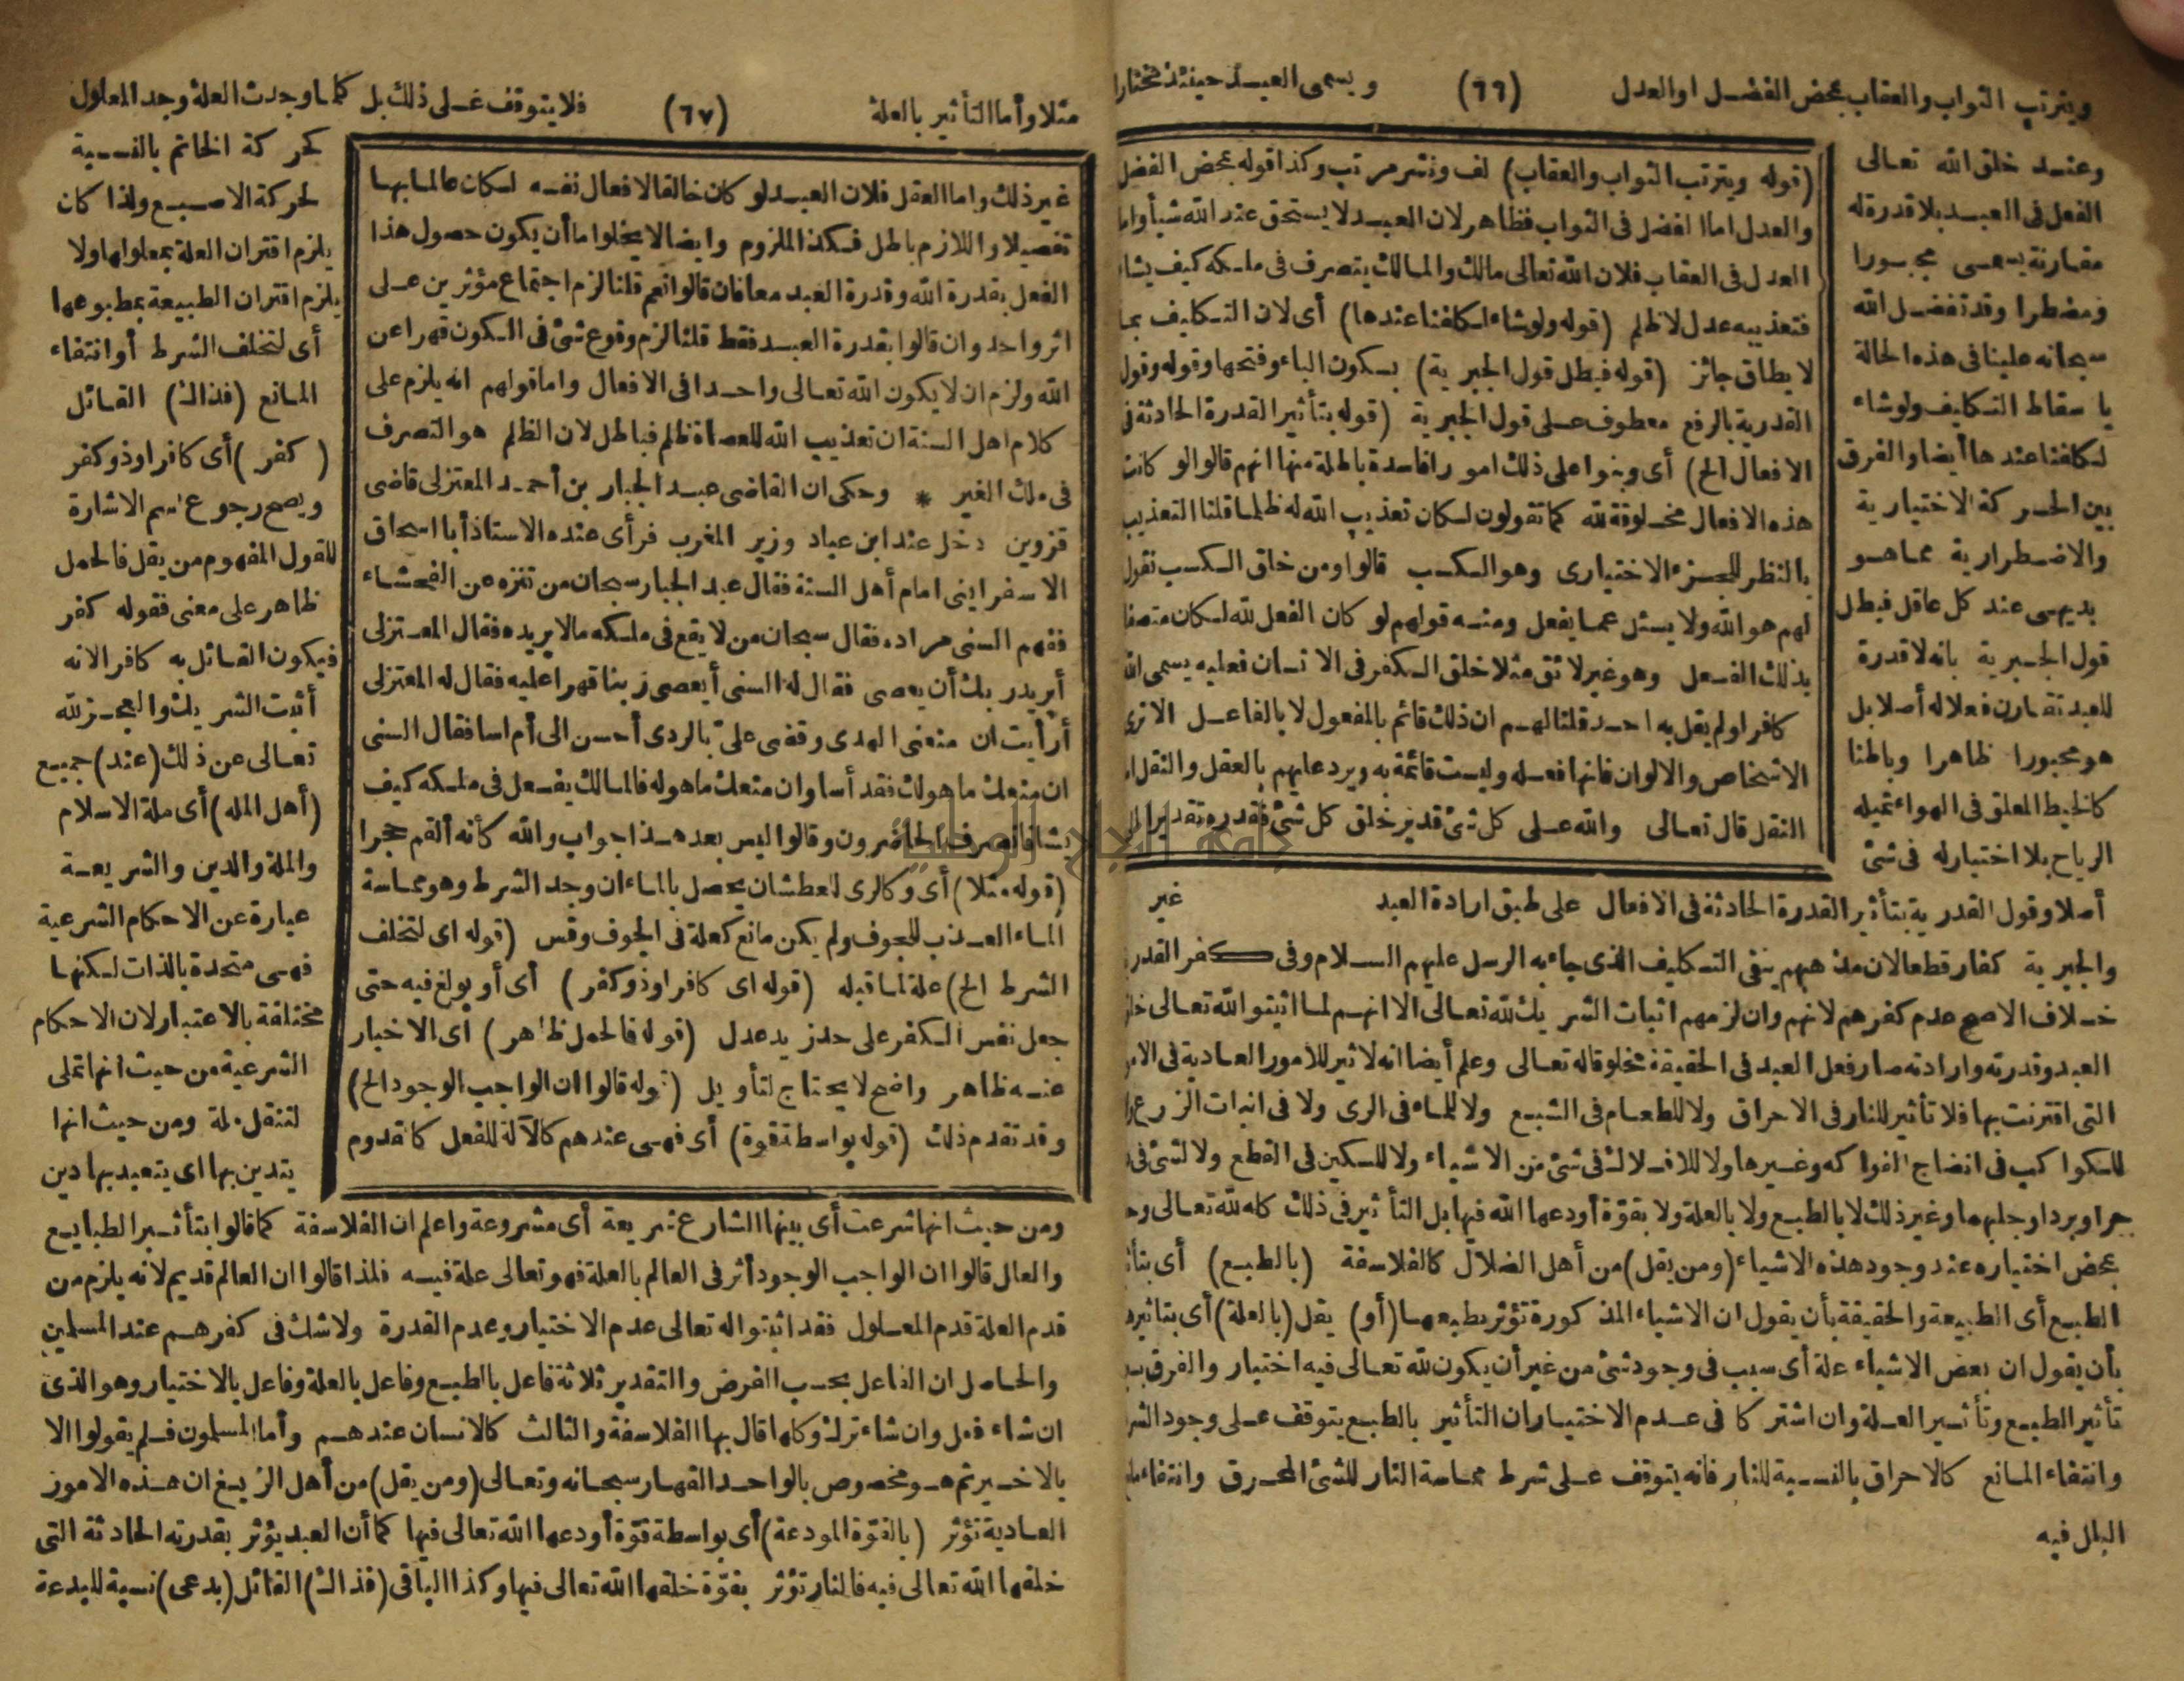 ويترتب الثواب والعقاب بمحض الفضل او العدل (٦٦) ويسمى العبد حينئذ مختارا
وعند خلق الله تعالى
الفعل فى العبد بلا قدرة له
مقارنة يسمى مجبورا
ومضطرا وقد تفضل الله
سبحانه علينا فى هذه الحالة
باسقاط التكليف ولو شاء
لكلفنا عندها أيضا والفرق
بين الحركة الاختيارية
والاضطرارية مما هو
بديهى عند كل عاقل فبطل
قول الجبرية بانه لا قدرة
للعبد تقارن فعلا له أصلا بل
هو مجبور ا ظاهرا وباطنا
كالخيط المعلق فى الهواء تميله
الرياح بلا اختيار له فى شئ
(قوله ويترتب الثواب والعقاب) لف ونشر مرتب وكذا قوله بمحض الفضل
والعدل اما الفضل فى الثواب فظاهر لان العبد لا يستحق عند الله شيأ واما
العدل فى العقاب فلان الله تعالى مالك والمالك يتصرف فى ملكه كيف يشاء
فتعذيبه عدل لا ظلم (قوله ولو شاء لكلفنا عندها) أى لان التكليف بما
لا يطاق جائز (قوله فبطل قول الجبرية) بسكون الباء وفتحها وقوله وقول
القدرية بالرفع معطوف على قول الجبرية (قوله بتأثير القدرة الحادثة فى
الافعال الخ) أى وبنوا على ذلك امورا فاسدة باطلة منها انهم قالوا لو كانت
هذه الافعال مخلوقة لله كما تقولون لكان تعذيب الله له ظلما قلنا التعذيب
بالنظر للجزء الاختيارى وهو الكسب قالوا ومن خلق الكسب نقول
لهم هو الله ولا يسئل عما يفعل ومنه قولهم لو كان الفعل لله لكان متصفا
بذلك الفعل وهو غير لائق مثلا خلق الكفر فى الانسان فعليه يسمى الله
كافرا ولم يقل به احد قلنا لهم ان ذلك قائم بالمفعول لا بالفاعل الا ترى
الاشخاص والالوان فانها فعله وليست قائمة به ويرد عليهم بالعقل والنقل اما
النقل قال تعالى والله على كل شئ قدير خلق كل شئ فقدره تقديرا الى
غير
أصلا وقول القدرية بتأثير القدرة الحادثة فى الافعال على طبق ارادة العبد
والجبرية كفار قطعا لان مذهبهم ينفى التكليف الذى جاء به الرسل عليهم السلام وفى كفر القدرية
خلاف الاصح عدم كفرهم لانهم وان لزمهم اثبات الشريك لله تعالى الا انهم لما اثبتوا لله تعالى خلق
العبد وقدرته وارادته صار فعل العبد فى الحقيقة مخلوقا له تعالى وعلم أيضا انه لا تثير للامور العادية فى الامور
التى اقترنت بها فلا تأثير للنار فى الاحراق ولا للطعام فى الشبع ولا للماء فى الرى ولا فى انبات الزرع ولا
للكواكب فى انضاج الفواكه وغيرها ولا للافلاك فى شئ من الاشياء ولا للسكين فى القطع ولا لشئ فى
حر او برد او جلبهما وغير ذلك لا بالطبع ولا بالعلة ولا بقوّة أودعها الله فيها بل التأثير فى ذلك كله لله تعالى
بمحض اختياره عند وجود هذه الاشياء (ومن يقل) من أهل الضلال كالفلاسفة (بالطبع) أى
الطبع أى الطبيعة والحقيقة بأن يقول ان الاشياء المذكورة تؤثر بطبعها (أو) يقل (بالعلة) أى بتاثيرها
بأن يقول ان بعض الاشياء علة أى سبب فى وجود شئ من غير أن يكون لله تعالى فيه اختيار والفرق بين
تأثير الطبع وتأثير العلة وان اشتركا فى عدم الاختيار ان التأثير بالطبع يتوقف على وجود الشرط
وانتفاء المانع كالاحراق بالنسبة للنار فانه يتوقف على شرط مماسة النار للشئ المحرق وانتفاء مانع
البلل فيه
مثلا وأما التأثير بالعلة (٦٧) فلا يتوقف على ذلك بل كلما وجدت العلة وجد المعلول
غير ذلك واما العقل فلان العبد لو كان خالقا لافعال نفسه لكان عالما بها
تفصيلا واللازم باطل فكذا الملزوم وايضا لا يخلوا ما أن يكون حصول هذا
الفعل بقدرة الله وقدرة العبد معا فان قالوا نعم قلنا لزم اجتماع مؤثرين على
اثر واحد وان قالوا بقدرة العبد فقط قلنا لزم وقوع شئ فى الكون قهرا عن
الله ولزم ان لا يكون الله تعالى واحدا فى الافعال واما قولهم انه يلزم على
كلام اهل السنة ان تعذيب الله للعصاة ظلم فباطل لان الظلم هو التصرف
فى ملك الغير * وحكى ان القاضى عبد الجبار بن أحمد المعتزلى قاضى
قزوين دخل عند ابن عباد وزير المغرب فرأى عنده الاستاذ أبا اسحاق
الاسفراينى امام أهل السنة فقال عبد الجبار سبحان من تنزه عن الفحشاء
ففهم السنى مراده فقال سبحان من لا يقع فى ملكه مالا يريده فقال المعتزلى
أيريد ربك أن يعصى فقال له السنى أيعصى ربنا قهرا عليه فقال له المعتزلى
أرأيت ان منعنى الهدى وقضى علىّ بالردى أحسن الى أم اسا فقال السنى
ان منعك ما هو لك فقد أسا وان منعك ما هو له فالمالك يفعل فى ملكه كيف
يشا فانصرف الحاضرون وقالوا ليس بعد هذا جواب والله كأنه ألقم حجرا
(قوله مثلا) أى وكالرى للعطشان يحصل بالماء ان وجد الشرط وهو مماسة
الماء العذب للجوف ولم يكن مانع كعلة فى الجوف وقس (قوله اى لتخلف
الشرط الخ) علة لما قبله (قوله اى كافرا وذو كفر) أى أو بولغ فيه حتى
جعل نفس الكفر على حد زيد عدل (قوله فالحمل ظاهر) أى الاخبار
عنه ظاهر واضح لا يحتاج لتأويل (قوله قالوا ان الواجب الوجود الخ)
وقد تقدم ذلك (قوله بواسطة قوة) أى فهى عندهم كالآلة للفعل كالقدوم
كحركة الخاتم بالنسبة
لحركة الاصبع ولذا كان
يلزم اقتران العلة بمعلولها ولا
يلزم اقتران الطبيعة بمطبوعها
أى لتخلف الشرط أو انتفاء
المانع (فذاك) القائل
(كفر) أى كافر او ذو كفر
ويصح رجوع اسم الاشارة
للقول المفهوم من يقل فالحمل
ظاهر على معنى فقوله كفر
فيكون القائل به كافرا لانه
أثبت الشريك والعجز لله
تعالى عن ذلك (عند) جميع
(أهل المله) أى ملة الاسلام
والملة والدين والشريعة
عبارة عن الاحكام الشرعية
فهى متحدة بالذات لكنها
مختلفة بالاعتبار لان الاحكام
الشرعية من حيث انها تملى
لتنقل ملة ومن حيث انها
يتدين بها اى يتعبد بها دين
ومن حيث انها شرعت أى بينها الشارع شريعة أى مشروعة واعلم ان الفلاسفة كما قالوا بتأثير الطبايع
والعال قالوا ان الواجب الوجود أثر فى العالم بالعلة فهو تعالى علة فيه فلذا قالوا ان العالم قديم لانه يلزم من
قدم العلة قدم المعلول فقد اثبتوا له تعالى عدم الاختيار وعدم القدرة ولا شك فى كفرهم عند المسلمين
والحاصل ان الفاعل بحسب الفرض والتقدير ثلاثة فاعل بالطبع وفاعل بالعلة وفاعل بالاختيار وهو الذى
ان شاء فعل وان شاء ترك وكلها قال بها الفلاسفة والثالث كالانسان عندهم وأما المسلمون فلم يقولوا الا
بالاخير ثم هو مخصوص بالواحد القهار سبحانه وتعالى (ومن يقل) من أهل الزيغ ان هذه الامور
العادية تؤثر (بالقوّة المودعة) أى بواسطة قوّة أودعها الله تعالى فيها كما أن العبد يؤثر بقدرته الحادثة التى
خلقها الله تعالى فيه فالنار تؤثر بقوّة خلقها الله تعالى فيها وكذا الباقى (فذاك) القائل (بدعى) نسبة للبدعة
جامعة النجاح الوطنية